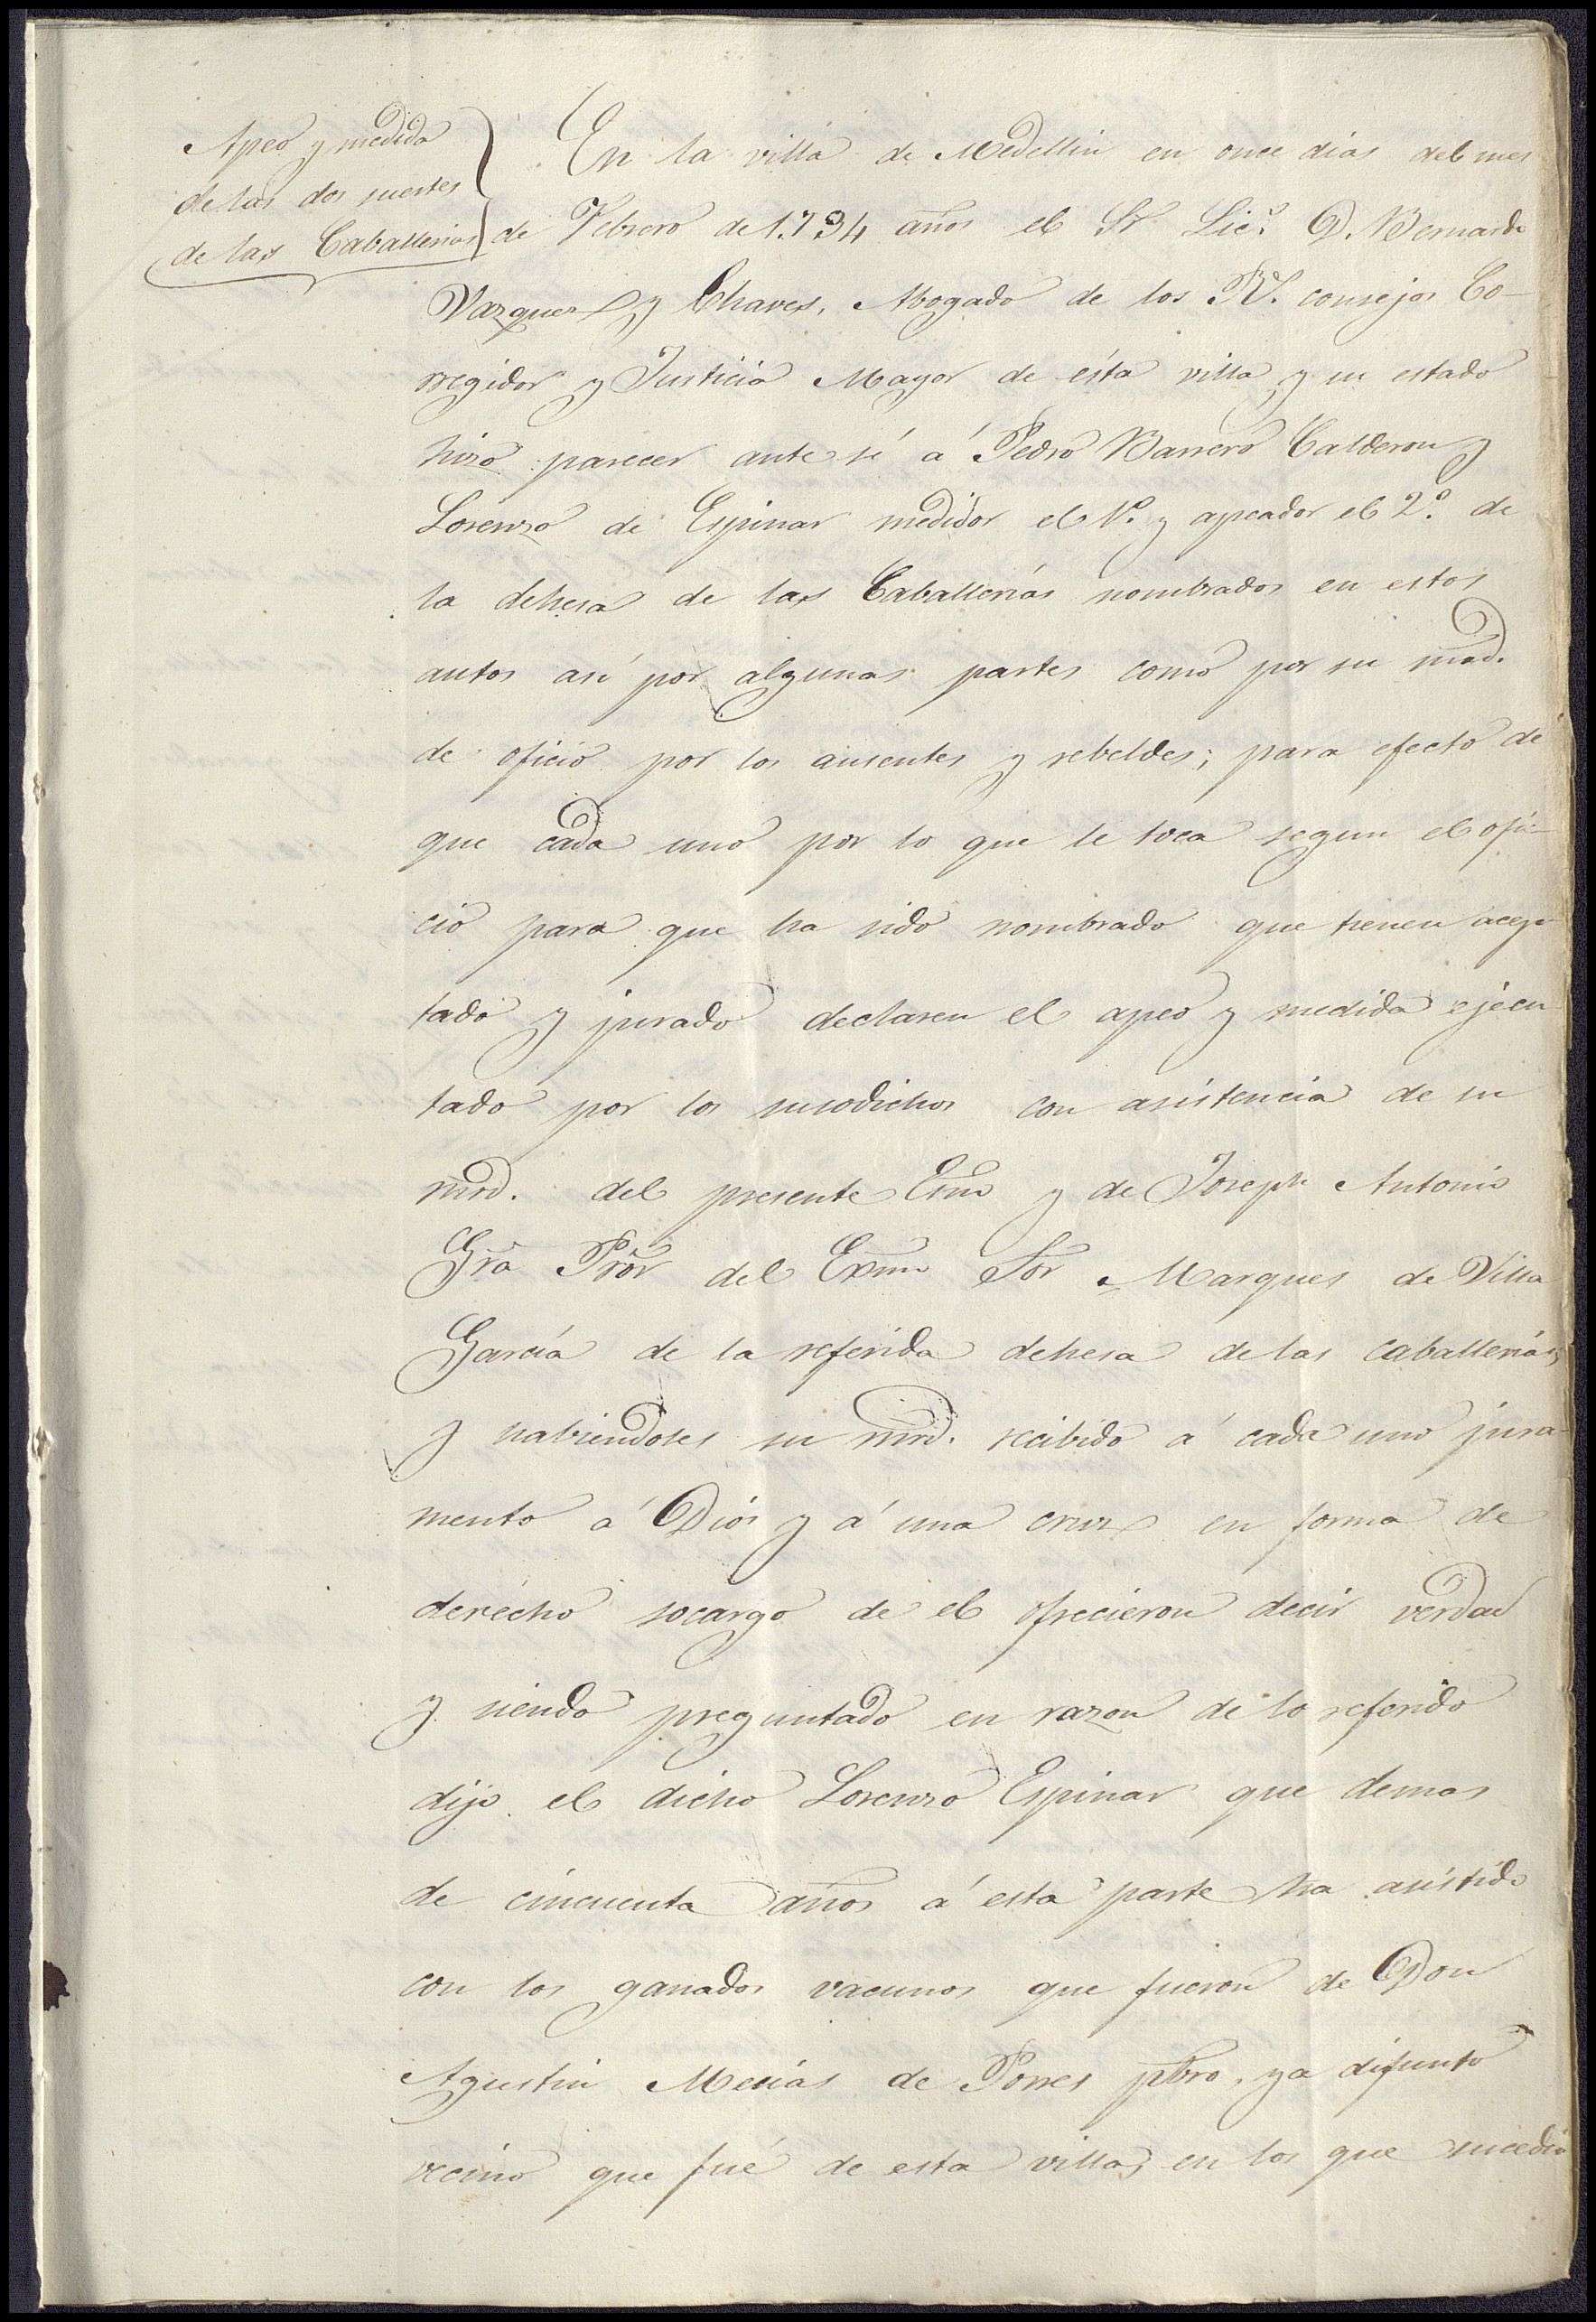 Apeo y medida
de las dos suertes
de las Caballerias
En la villa de Medellin en once dias del mes
de Febrero de 1.734 años el Sr. Lic.º D. Bernardo
Vazquez y Chaves, Abogado de los Rs. consejos Co-
rregidor y Justicia Mayor de ésta villa y su estado
hizo parecer ante sí á Pedro Barrero Calderon y
Lorenzo de Espinar medidor el 1º. y apeador el 2º. de
la dehesa de las Caballerías nombrados en estos
autos así por algunas partes como por su mrd.
de oficio por los ausentes y rebeldes; para efecto de
que cada uno por lo que le toca segun el ofi-
cio para que ha sido nombrado que tienen acep-
tado y jurado declaren el apeo y medida ejecu
tado por los susodichos con asistencia de su
mrd. del presente Esno y de Joseph Antonio
Gra Pror del Exmo Sor Marques de Villa
García de la referida dehesa de las caballerías,
y habiendoles su mrd. recibido á cada uno jura-
mento á Dios y á una cruz en forma de
derecho socargo de el ofrecieron decir verdad
y siendo preguntado en razon de lo referido
dijo el dicho Lorenzo Espinar que demas
de cincuenta años á esta parte ha asistido
con los ganados vacunos que fueron de Don
Agustin Mesías de Porres pbro. ya difunto
vecino que fué de esta villa, en los que sucedió